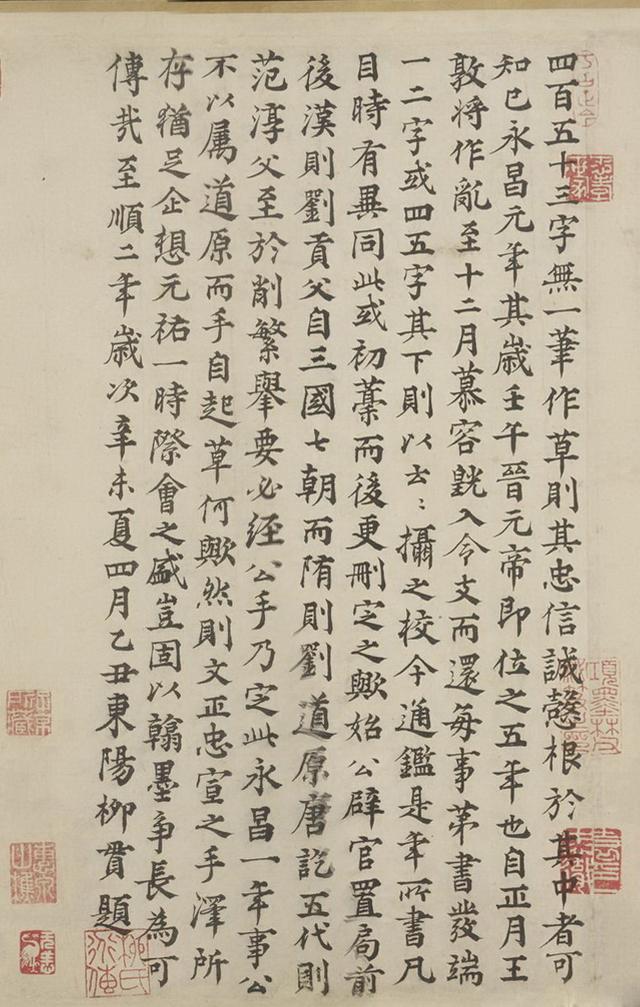 四百五十三字無一筆作草則其忠信誠慤根於其中者可
知已永昌元年其歲壬午晉元帝即位之五年也自正月王
敦將作亂至十二月慕容皝入令支而還每事第書發端
一二字或四五字其下則以云〻攝之校今通鑑是年所書凡
目時有異同此或初藁而後更刪定之歟始公辟官置局前
後漢則劉貢父自三國七朝而隋則劉道原唐訖五代則
范淳父至於削繁舉要必經公手乃定此永昌一年事公
不以属道原而手自起草何歟然則文正忠宣之手澤所
存猶足企想元祐一時際會之盛豈固以翰墨争長為可
傳哉至順二年歲次辛未夏四月乙丑東陽柳貫題
柳氏